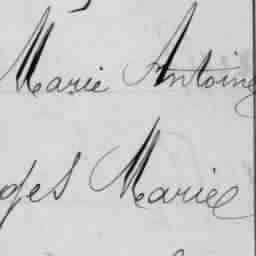 Marie Antoine
ges Marie